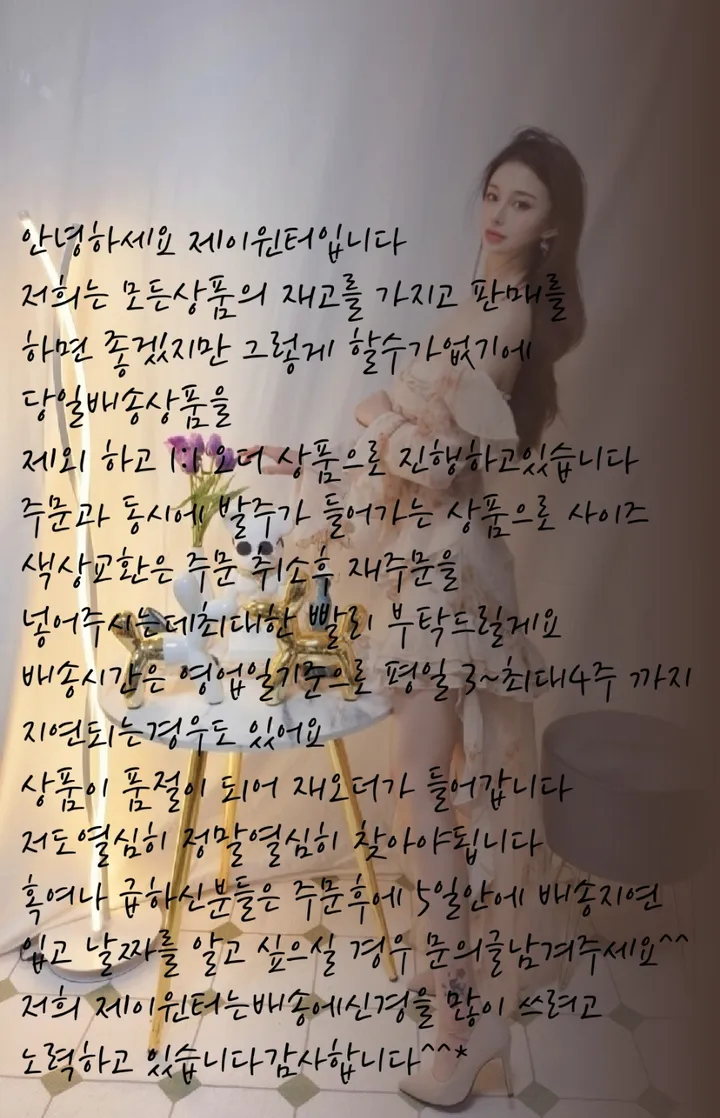 안녕하세요 제이윈터입니다
저희는 모든상품의 재고를 가지고 판매를
하면 좋겠지만 그렇게 할수가없기에
당일배송상품을
제외 하고 1:1 오더 상품으로 진행하고있습니다
주문과 동시에 발주가 들어가는 상품으로 사이즈
색상교환은 주문 취소후 재주문을
넣어주시는데최대한 빨리 부탁드릴게요
배송시간은 영업일기준으로 평일 3~최대4주 까지
지연되는경우도 있어요
상품이 품절이 되어 재오더가 들어갑니다
저도열심히 정말열심히 찾아야됩니다
혹여나 급하신분들은 주문후에 5일안에 배송지연
입고 날짜를 알고 싶으실 경우 문의글남겨주세요^^
저희 제이윈터는배송에신경을 많이 쓰려고
노력하고 있습니다감사합니다^^*